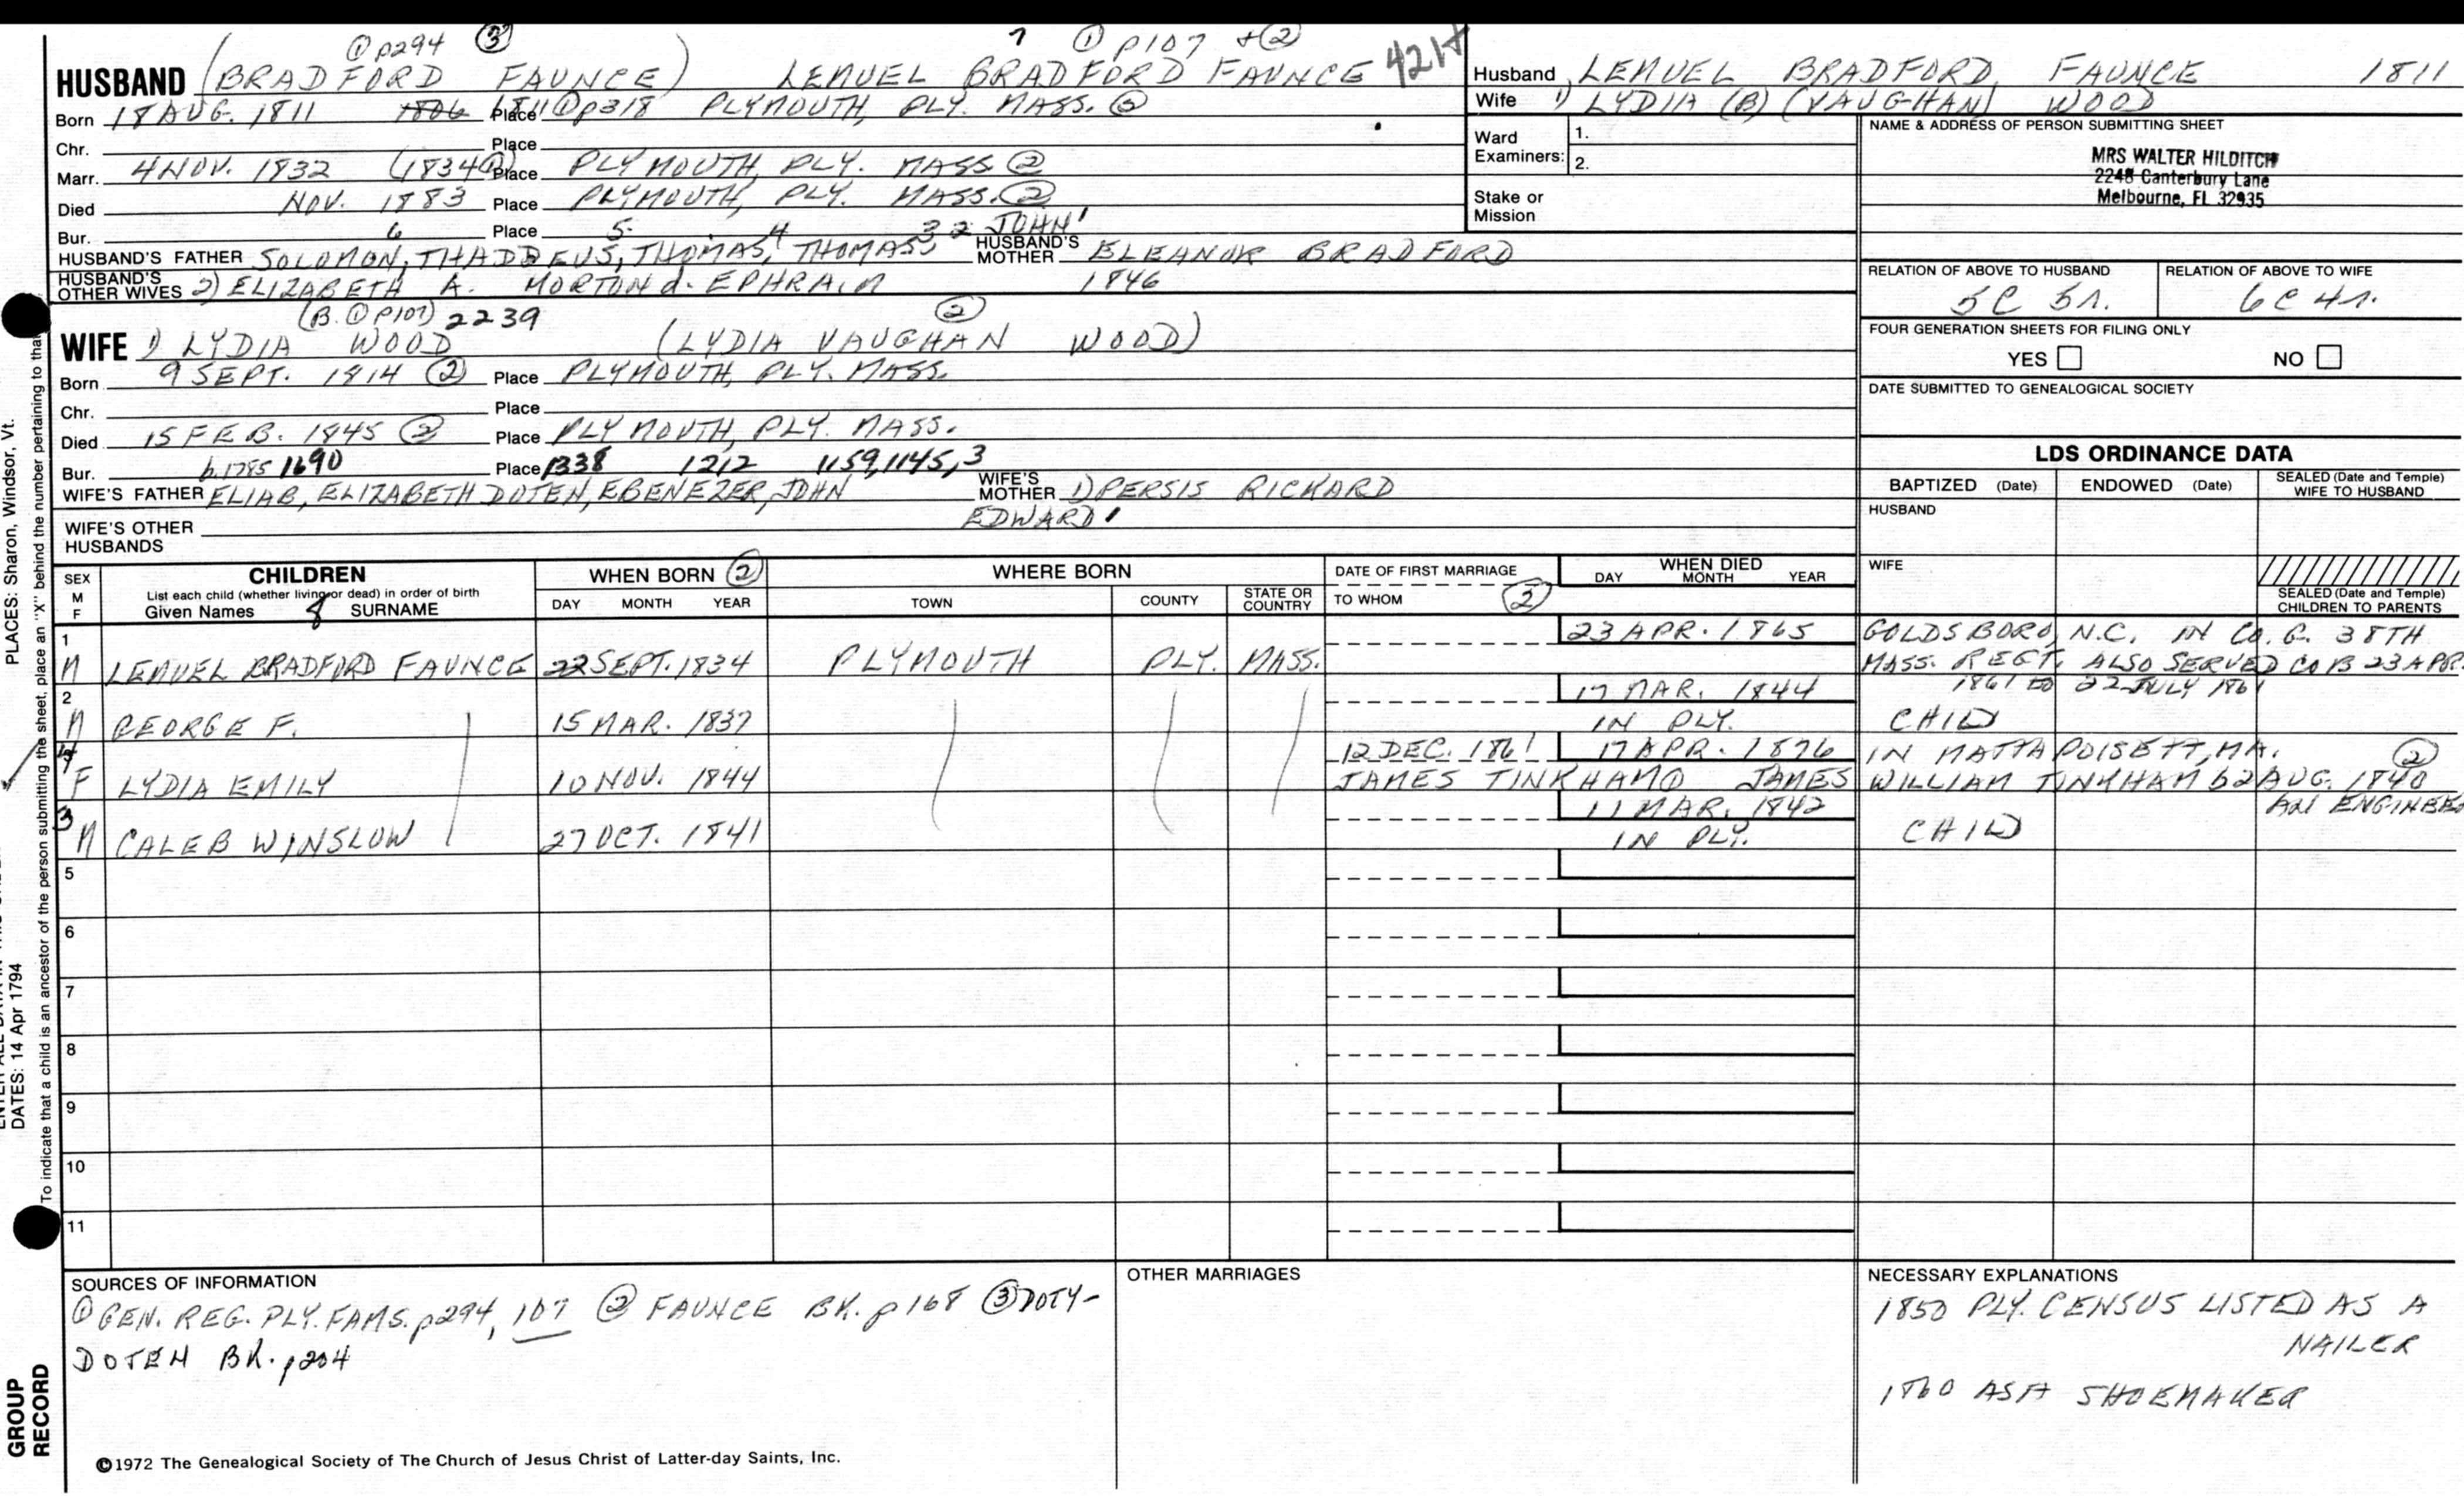 ① p294 ③ 7 ① P107 + ② 421+
HUSBAND (BRADFORD FAUNCE) LEMUEL BRADFORD FAUNCE
Born 18 AUG. 1811 1806 1811 ① p318 Place PLYMOUTH, PLY. MASS. ②
Chr. Place
Marr. 4 NOV. 1832 (1834 ①) Place PLYMOUTH, PLY. MASS ②
Died NOV. 1883 Place PLYMOUTH, PLY. MASS. ②
Bur. 6 Place 5 4 3 2 JOHN 1
HUSBAND'S FATHER SOLOMON, THADDEUS, THOMAS, THOMAS HUSBAND'S MOTHER ELEANOR BRADFORD
HUSBAND'S OTHER WIVES 2) ELIZABETH A. MORTON d. EPHRAIM 1846
(B. ① P107) 2239 ②
WIFE 1) LYDIA WOOD (LYDIA VAUGHAN WOOD)
Born 9 SEPT. 1814 ② Place PLYMOUTH, PLY. MASS.
Chr. Place
Died 15 FEB. 1845 ② Place PLYMOUTH, PLY. MASS.
Bur. b.1785 1690 Place 1338 1212 1159, 1145, 3
WIFE'S FATHER ELIAB, ELIZABETH DOTEN, EBENEZER, JOHN WIFE'S MOTHER 1) PERSIS RICKARD
EDWARD 1
WIFE'S OTHER HUSBANDS
Husband LEMUEL BRADFORD FAUNCE 1811
Wife 1) LYDIA (B) (VAUGHAN) WOOD
Ward Examiners: 1.
2.
Stake or Mission
NAME & ADDRESS OF PERSON SUBMITTING SHEET
MRS WALTER HILDITCH
2248 Canterbury Lane
Melbourne, FL 32935
RELATION OF ABOVE TO HUSBAND RELATION OF ABOVE TO WIFE
5C 5r. 6C 4r.
FOUR GENERATION SHEETS FOR FILING ONLY
YES NO
DATE SUBMITTED TO GENEALOGICAL SOCIETY
LDS ORDINANCE DATA
BAPTIZED (Date) ENDOWED (Date) SEALED (Date and Temple) WIFE TO HUSBAND
HUSBAND
WIFE
SEALED (Date and Temple) CHILDREN TO PARENTS
SEX M F CHILDREN WHEN BORN ② WHERE BORN DATE OF FIRST MARRIAGE WHEN DIED
List each child (whether living or dead) in order of birth
Given Names SURNAME DAY MONTH YEAR TOWN COUNTY STATE OR COUNTRY TO WHOM ② DAY MONTH YEAR
1 23 APR. 1865 GOLDSBORO, N.C. IN CO. G. 38TH
M LEMUEL BRADFORD FAUNCE 22 SEPT. 1834 PLYMOUTH PLY. MASS. MASS. REGT. ALSO SERVED CO B 23 APR.
2 17 MAR. 1844 1861 TO 22 JULY 1861
M GEORGE F. 15 MAR. 1837 IN PLY. CHILD
4 12 DEC. 1861 17 APR. 1876 IN MATTAPOISETT, MA. ②
F LYDIA EMILY 10 NOV. 1844 JAMES TINKHAM ① JAMES WILLIAM TINKHAM b 2 AUG. 1840
3 11 MAR. 1842 AN ENGINEER
M CALEB WINSLOW 27 OCT. 1841 IN PLY. CHILD
5
6
7
8
9
10
11
SOURCES OF INFORMATION
① GEN. REG. PLY. FAMS. p294, 107 ② FAUNCE BK. p168 ③ DOTY-
DOTEN BK. p204
OTHER MARRIAGES
NECESSARY EXPLANATIONS
1850 PLY. CENSUS LISTED AS A
NAILER
1860 AS A SHOEMAKER
©1972 The Genealogical Society of The Church of Jesus Christ of Latter-day Saints, Inc.
PLACES: Sharon, Windsor, Vt.
DATES: 14 Apr 1794
To indicate that a child is an ancestor of the person submitting the sheet, place an "X" behind the number pertaining to that
GROUP
RECORD